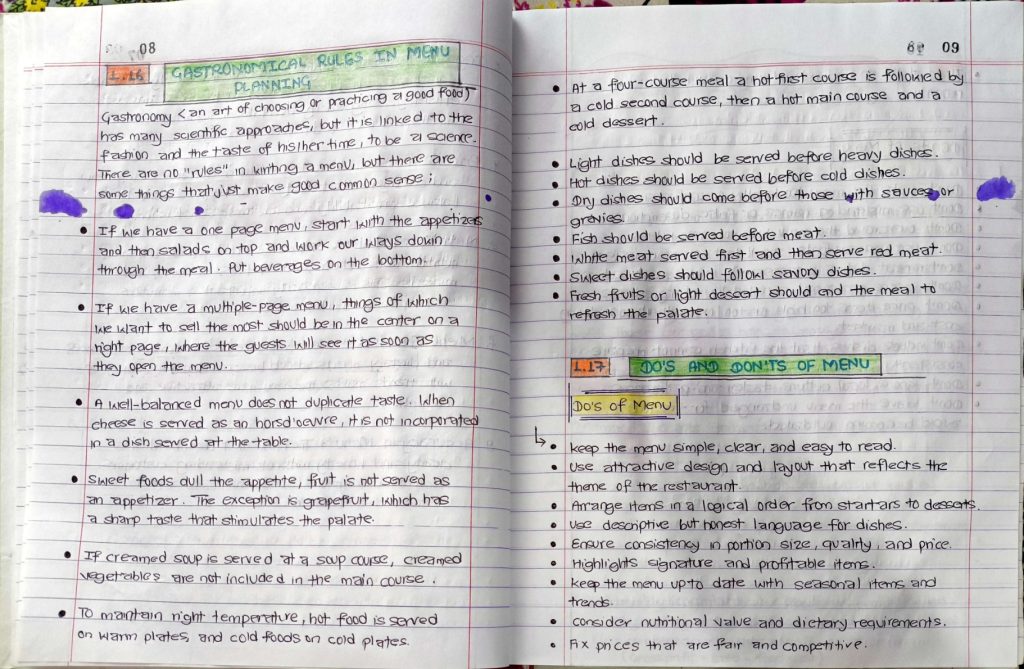 08
1.16 GASTRONOMICAL RULES IN MENU
PLANNING
Gastronomy (an art of choosing or practicing a good food)
has many scientific approaches, but it is linked to the
fashion and the taste of his/her time, to be a science.
There are no "rules" in writing a menu, but there are
some things that just make good common sense;
• If we have a one page menu, start with the appetizers
and then salads on top and work our ways down
through the meal. Put beverages on the bottom.
• If we have a multiple-page menu, things of which
we want to sell the most should be in the center on a
right page, where the guests will see it as soon as
they open the menu.
• A well-balanced menu does not duplicate taste. When
cheese is served as an horsd'oeuvre, it is not incorporated
in a dish served at the table.
• Sweet foods dull the appetite, fruit is not served as
an appetizer. The exception is grapefruit, which has
a sharp taste that stimulates the palate.
• If creamed soup is served at a soup course, creamed
vegetables are not included in the main course.
• To maintain right temperature, hot food is served
on warm plates, and cold foods on cold plates.
09
• At a four-course meal a hot-first course is followed by
a cold second course, then a hot main course and a
cold dessert.
• Light dishes should be served before heavy dishes.
• Hot dishes should be served before cold dishes.
• Dry dishes should come before those with sauces or
gravies.
• Fish should be served before meat.
• White meat served first and then serve red meat.
• Sweet dishes should follow savory dishes.
• Fresh fruits or light dessert should end the meal to
refresh the palate.
1.17 DO'S AND DON'TS OF MENU
Do's of Menu
• keep the menu simple, clear, and easy to read.
• Use attractive design and layout that reflects the
theme of the restaurant.
• Arrange items in a logical order from startars to desserts.
• Use descriptive but honest language for dishes.
• Ensure consistency in portion size, quality, and price.
• Highlights signature and profitable items.
• keep the menu upto date with seasonal items and
trends.
• consider nutritional value and dietary requirements.
• Fix prices that are fair and competitive.